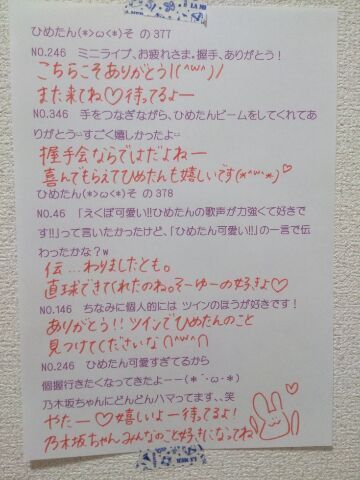 ひめたん(*>ω<*)そ の377
NO.246　ミニライブ、お疲れさま。握手、ありがとう!
こちらこそありがとう!(^w^)/
また来てね♡待ってるよー
NO.346　手をつなぎながら、ひめたんビームをしてくれてあ
りがとう~すごく嬉しかったよ~
握手会ならではだよねー
喜んでもらえてひめたんも嬉しいです(*^w^*)♡
ひめたん(*>ω<*)そ の378
NO.46　「えくぼ可愛い!!ひめたんの歌声が力強くて好きで
す!!」って言いたかったけど、「ひめたん可愛い!!」の一言で伝
わったかな?w
伝...わりましたとも。
直球できてくれたのね。そーゆーの好きよ♡
NO.146　ちなみに個人的には ツインのほうが好きです!
ありがとう!!ツインでひめたんのこと
見つけてくださいな∩^w^∩
NO.246　ひめたん可愛すぎてるから
個握行きたくなってきたよーー(*´･ω･*)
乃木坂ちゃんにどんどんハマってます、、笑
やたー♡嬉しいよー待ってるよ!
乃木坂ちゃんみんなのこと好きになってね♡